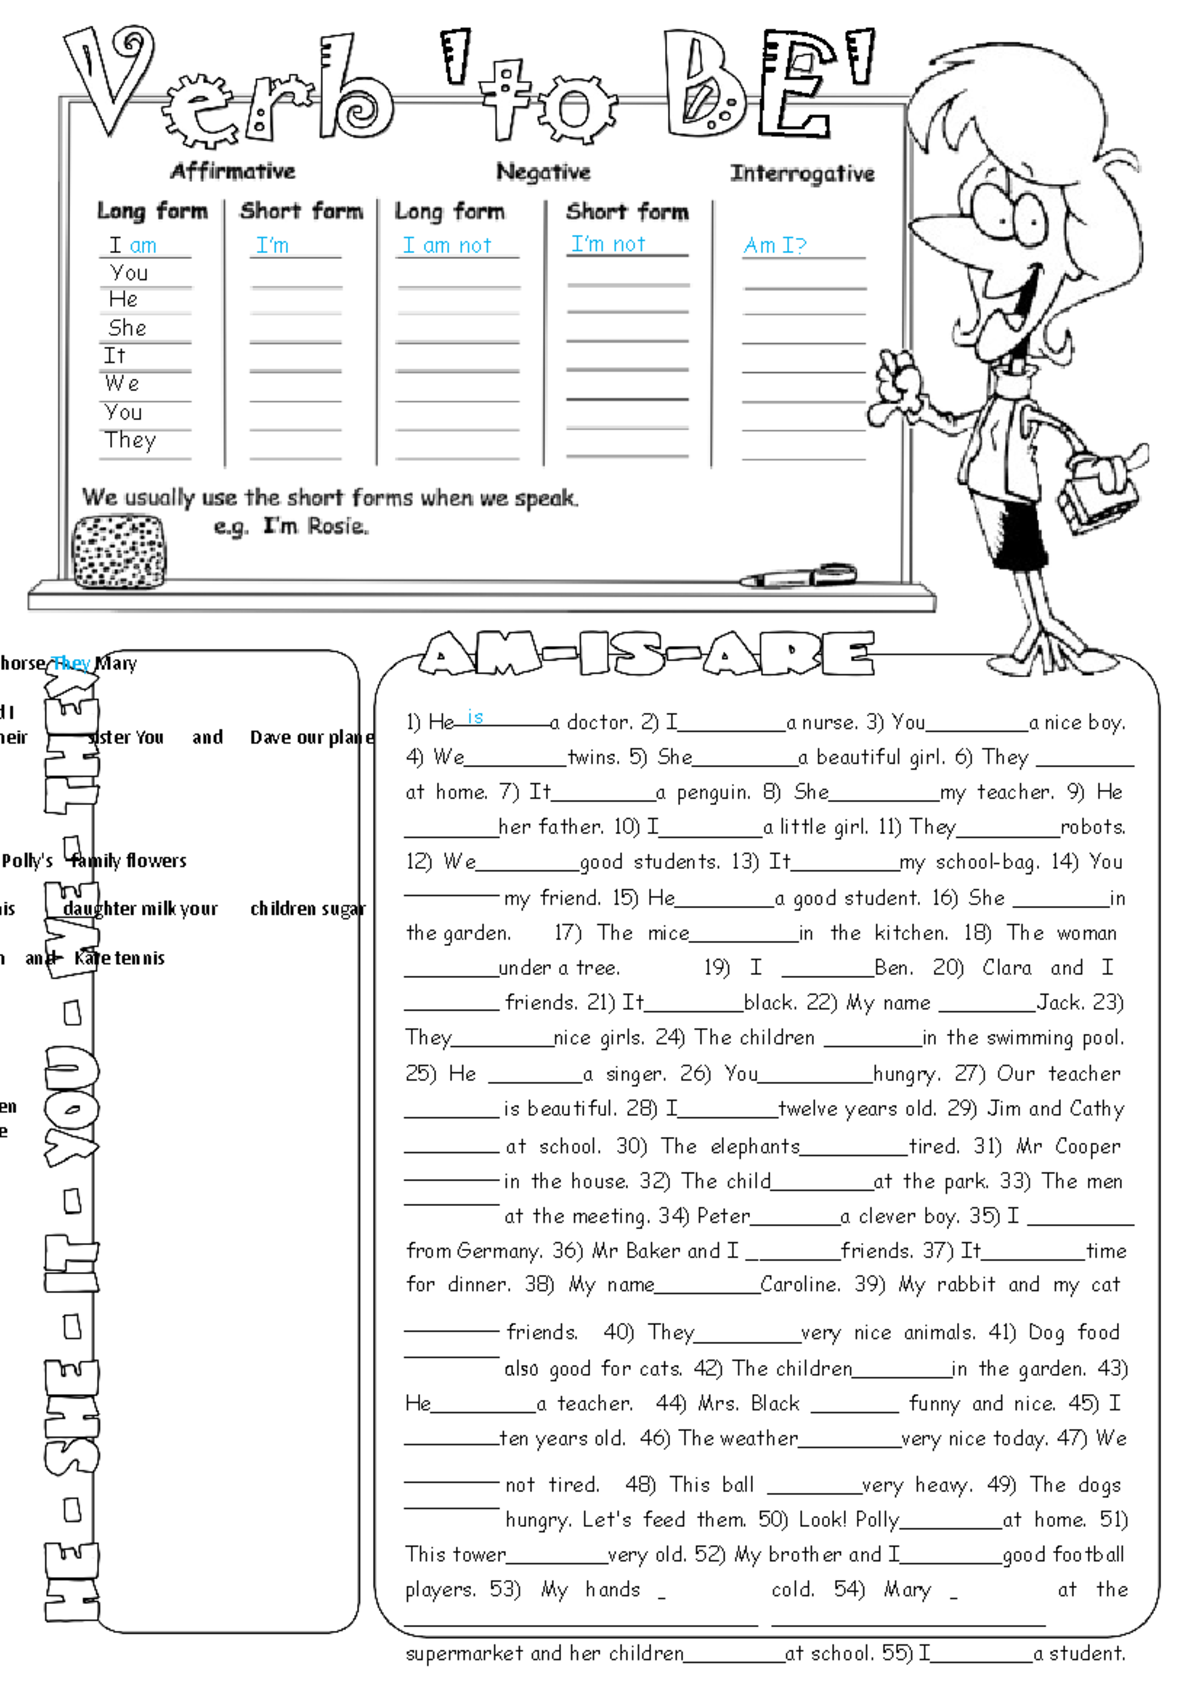 Verb 'to BE'
Affirmative Negative Interrogative
Long form Short form Long form Short form
I am I'm I am not I'm not Am I?
You
He
She
It
We
You
They
We usually use the short forms when we speak.
e.g. I'm Rosie.
HE - SHE - IT - YOU - WE - THEY
horse They Mary
d I
heir sister You and Dave our plane
Polly's family flowers
his daughter milk your children sugar
n and Kate tennis
en
e
AM-IS-ARE
1) He__is______a doctor. 2) I_________a nurse. 3) You_________a nice boy.
4) We_________twins. 5) She_________a beautiful girl. 6) They ________
at home. 7) It_________a penguin. 8) She_________my teacher. 9) He
________her father. 10) I_________a little girl. 11) They_________robots.
12) We_________good students. 13) It_________my school-bag. 14) You
________ my friend. 15) He________a good student. 16) She ________in
the garden. 17) The mice_________in the kitchen. 18) The woman
________under a tree. 19) I ________Ben. 20) Clara and I
________ friends. 21) It________black. 22) My name ________Jack. 23)
They_________nice girls. 24) The children ________in the swimming pool.
25) He ________a singer. 26) You_________hungry. 27) Our teacher
________ is beautiful. 28) I________twelve years old. 29) Jim and Cathy
________ at school. 30) The elephants_________tired. 31) Mr Cooper
________ in the house. 32) The child_________at the park. 33) The men
________ at the meeting. 34) Peter________a clever boy. 35) I _________
from Germany. 36) Mr Baker and I _________friends. 37) It_________time
for dinner. 38) My name_________Caroline. 39) My rabbit and my cat
________ friends. 40) They_________very nice animals. 41) Dog food
________ also good for cats. 42) The children________in the garden. 43)
He_________a teacher. 44) Mrs. Black _______ funny and nice. 45) I
________ten years old. 46) The weather_________very nice today. 47) We
________ not tired. 48) This ball ________very heavy. 49) The dogs
________ hungry. Let's feed them. 50) Look! Polly_________at home. 51)
This tower_________very old. 52) My brother and I_________good football
players. 53) My hands _ cold. 54) Mary _ at the
supermarket and her children_________at school. 55) I_________a student.